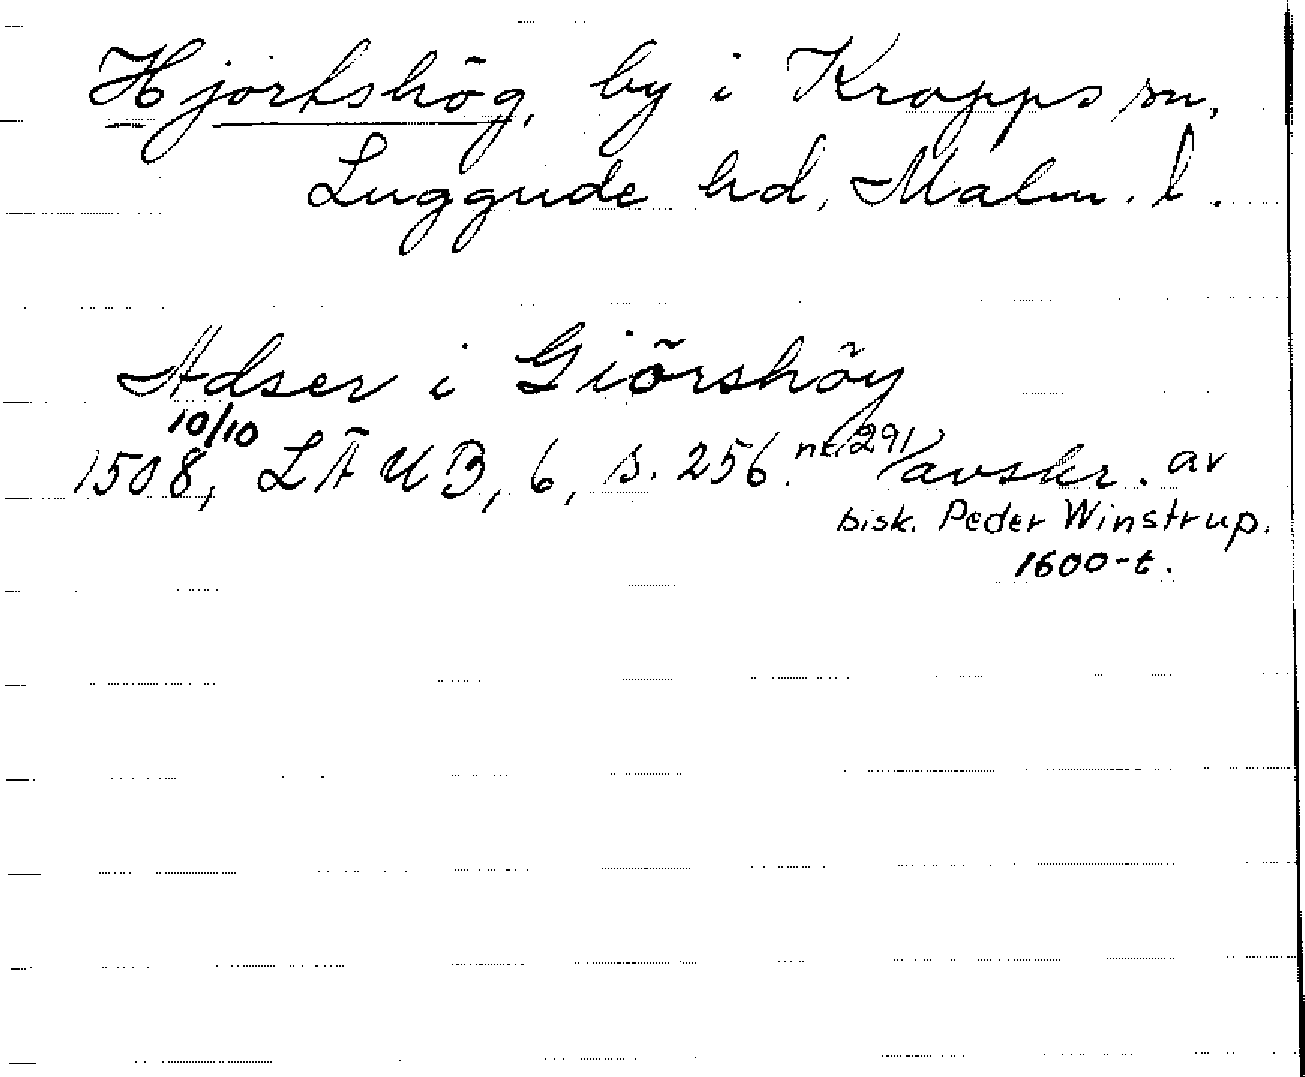 Hjortshög, by i Kropps sn,
Luggude hd, Malm. l.
Adser i Giörshöy
10/10
1508, LÄUB, 6, s. 256. nr. 291, avskr. av
bisk. Peder Winstrup.
1600-t.